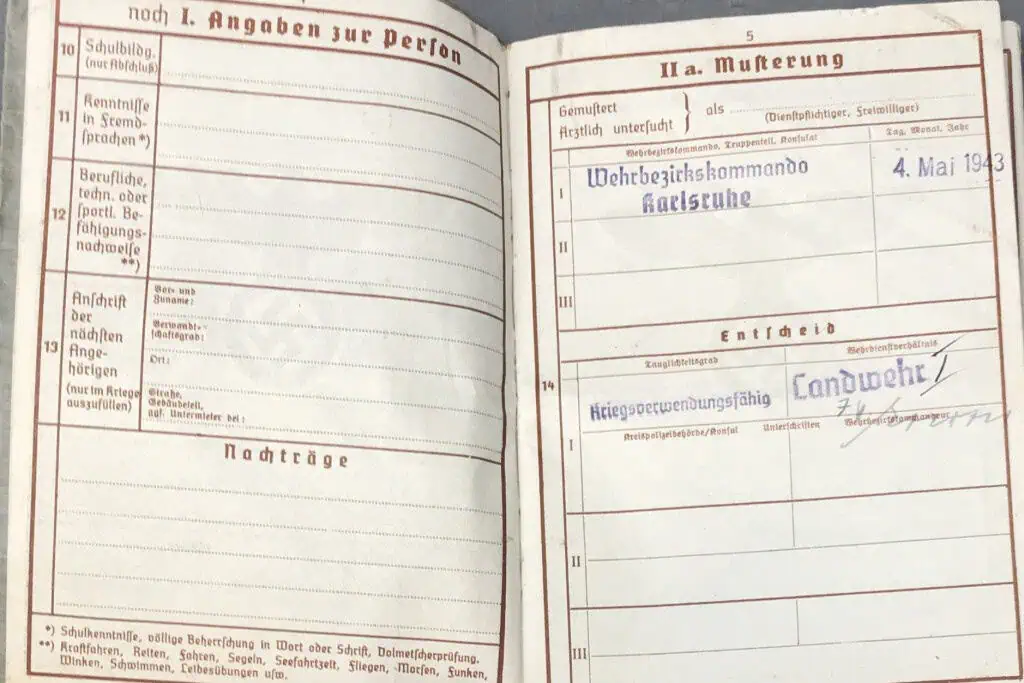 noch I. Angaben zur Person
10 Schulbildg.
(nur Abschluß)
11 Kenntnisse
in Fremd-
sprachen *)
12 Berufliche,
techn. oder
sportl. Be-
fähigungs-
nachweise
**)
13 Anschrift
der
nächsten
Ange-
hörigen
(nur im Kriege
auszufüllen)
Vor- und
Zuname:
Verwandt-
schaftsgrad:
Ort:
Straße,
Gebäudeteil,
ggf. Untermieter bei:
Nachträge
*) Schulkenntnisse, völlige Beherrschung in Wort oder Schrift, Dolmetscherprüfung.
**) Kraftfahren, Reiten, Fahren, Segeln, Seefahrtzeit, Fliegen, Morsen, Funken,
Winken, Schwimmen, Leibesübungen usw.
5
II a. Musterung
Gemustert
Ärztlich untersucht
als
(Dienstpflichtiger, Freiwilliger)
Wehrbezirkskommando, Truppenteil, Konsulat
Tag, Monat, Jahr
I Wehrbezirkskommando 4. Mai 1943
Karlsruhe
II
III
Entscheid
14
Tauglichkeitsgrad
Wehrdienstverhältnis
Kriegsverwendungsfähig Landwehr I
Kreispolizeibehörde/Konsul Unterschriften Wehrbezirkskommandeur
I
II
III